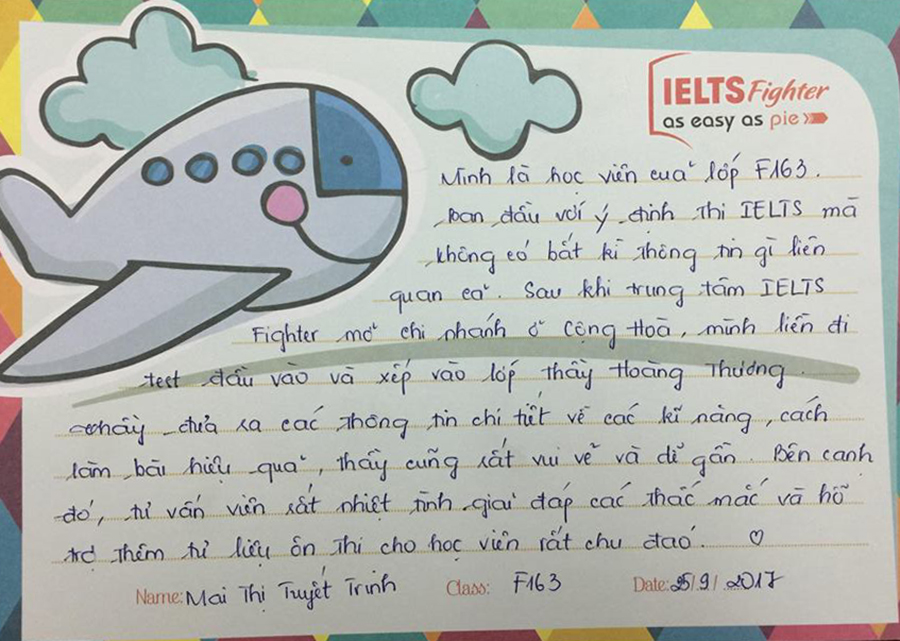 IELTS Fighter
as easy as pie
Mình là học viên của lớp F163.
Ban đầu với ý định thi IELTS mà
không có bất kì thông tin gì liên
quan cả. Sau khi trung tâm IELTS
Fighter mở chi nhánh ở Cộng Hoà, mình liền đi
test đầu vào và xếp vào lớp thầy Hoàng Thương.
thầy đưa ra các thông tin chi tiết về các kĩ năng, cách
làm bài hiệu quả, thầy cũng rất vui vẻ và dễ gần. Bên cạnh
đó, tư vấn viên rất nhiệt tình giải đáp các thắc mắc và hỗ
trợ thêm tư liệu ôn thi cho học viên rất chu đáo. ♡
Name: Mai Thị Tuyết Trinh Class: F163 Date: 25/9/2017